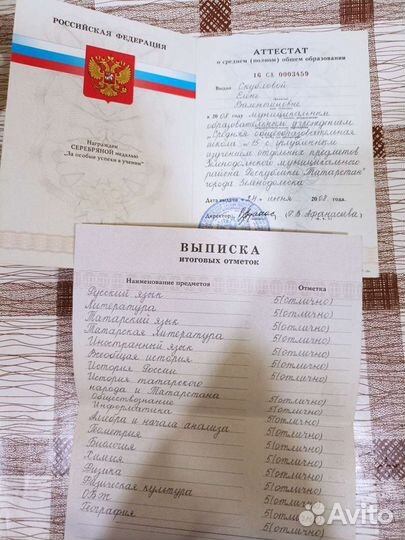 РОССИЙСКАЯ ФЕДЕРАЦИЯ
Награждён
СЕРЕБРЯНОЙ медалью
„За особые успехи в учении“
АТТЕСТАТ
о среднем (полном) общем образовании
16 СА 0003459
Выдан
Елене
Валентиновне
в 2008 году муниципальным
образовательным учреждением
"Средняя общеобразовательная
школа №15 с углубленным
изучением отдельных предметов
Зеленодольского муниципального
района Республики Татарстан"
города Зеленодольска
Дата выдачи «24» июня 2008 года.
Директор (Г.В. Афанасьева)
ВЫПИСКА
итоговых отметок
Наименование предметов Отметка
Русский язык 5(отлично)
Литература 5(отлично)
Татарский язык 5(отлично)
Татарская литература 5(отлично)
Иностранный язык 5(отлично)
Всеобщая история 5(отлично)
История России 5(отлично)
История татарского
народа и Татарстана 5(отлично)
Обществознание 5(отлично)
Информатика 5(отлично)
Алгебра и начала анализа 5(отлично)
Геометрия 5(отлично)
Биология 5(отлично)
Химия 5(отлично)
Физика 5(отлично)
Физическая культура 5(отлично)
ОБЖ 5(отлично)
География 5(отлично)
Avito